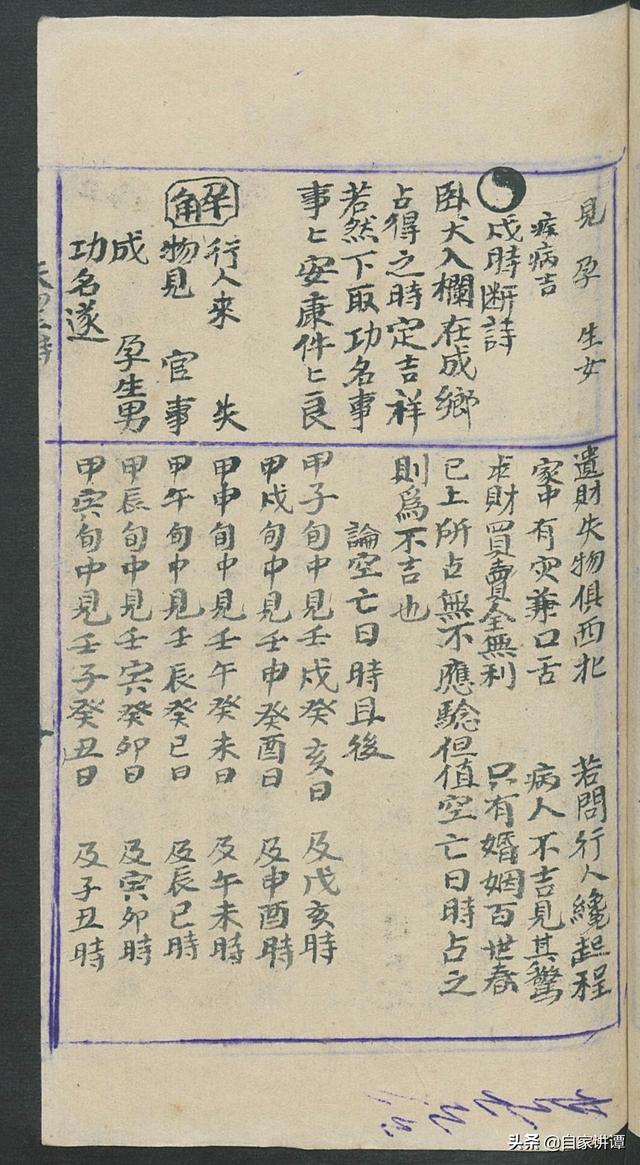 見孕 生女
疾病吉
戌時断詩
卧犬入欄在戌鄉
占得之時定吉祥
若然下取功名事
事〻安康件〻良
解
行人來 失
物見 官事
成 孕生男
功名遂
遺財失物俱西北 若問行人纔起程
家中有灾兼口舌 病人不吉見其驚
求財買賣全無利 只有婚姻百世春
已上所占無不應驗但值空亡日時占之
則為不吉也
論空亡日時具後
甲子旬中見壬戌癸亥日 及戌亥時
甲戌旬中見壬申癸酉日 及申酉時
甲申旬中見壬午癸未日 及午未時
甲午旬中見壬辰癸巳日 及辰巳時
甲辰旬中見壬寅癸卯日 及寅卯時
甲寅旬中見壬子癸丑日 及子丑時
头条 @自家讲谭